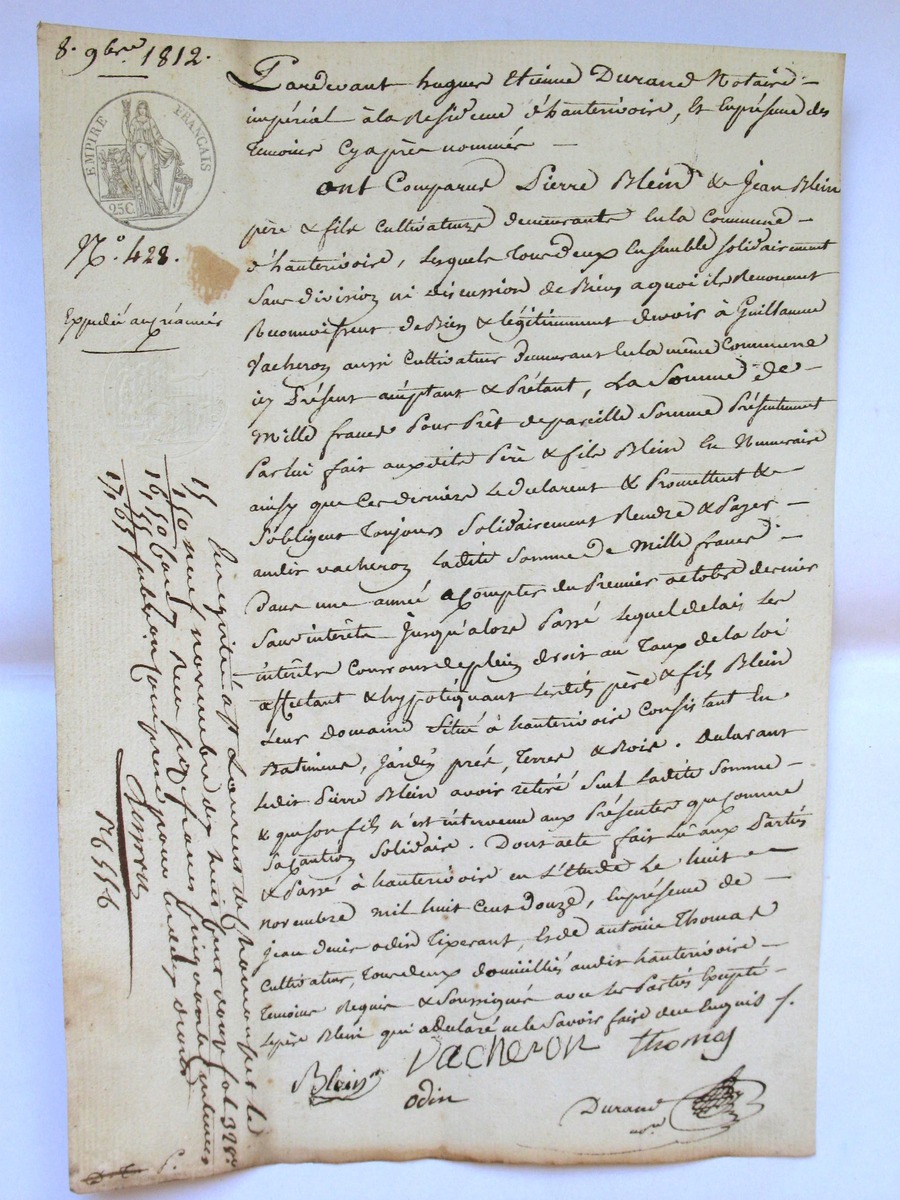 8. 9bre 1812.
EMPIRE FRANÇAIS
25C
N.° 428.
Expédié au créancier
Pardevant hugues Etienne Durand Notaire
impérial à la Residence d'hauterivoire, Et En présence des
temoins Cy après nommés
ont Comparus Pierre Blein & Jean Blein
père & fils Cultivateurs demeurants En la Commune
d'hauterivoire, lesquels tous deux Ensemble solidairement
Sans division ni discussion de Biens a quoi ils Renoncent
Reconnoissent de Bien & légitimement devoir à Guillaume
Vacheron aussi Cultivateur demeurant En la même Commune
icy Présent acceptant & Prétant, La Somme de
Mille francs Pour Prêt de pareille Somme Présentement
Par lui fait auxdits Père & fils Blein En Numeraire
ainsy que Ces derniers Le déclarent & Promettent &
S'obligent toujours Solidairement Rendre & Payer
audit Vacheron Ladite Somme De Mille francs
Dans une année a Compter du Premier octobre dernier
Sans intérêts Jusqu'alors Passé Lequel delais Les
intérêts Courront de plein droit au Taux de la Loi
affectant & hypotéquant Lesdits père & fils Blein
Leur Domaine Situé à hauterivoire Consistant En
Batimens, Jardin, prés, Terres & Bois. Déclarant
Ledit Pierre Blein avoir retiré Seul Ladite Somme
& que son fils n'est intervenu aux Présentes que Comme
Sa Caution Solidaire. Dont acte fait Lu aux Parties
& Passé à hauterivoire en L'étude Le huit
novembre mil huit Cent Douze, En présence de
Jean Denis odin Tixerant, Et de antoine Thomas
Cultivateur, Tous deux domicilliés audit hauterivoire
Temoins Requis & Soussignés avec Les Parties Excepté
Le père Blein qui a déclaré ne le Savoir faire de ce Enquis
Blein
Vacheron
thomas
odin
Durand
nre
Enregistré à St Laurent de Chamousset le
neuf novembre dix huit cent douze fol. 328
Reçu dix francs cinquante centimes
15
1 50
16 50
1 65
17 65
16 55 6